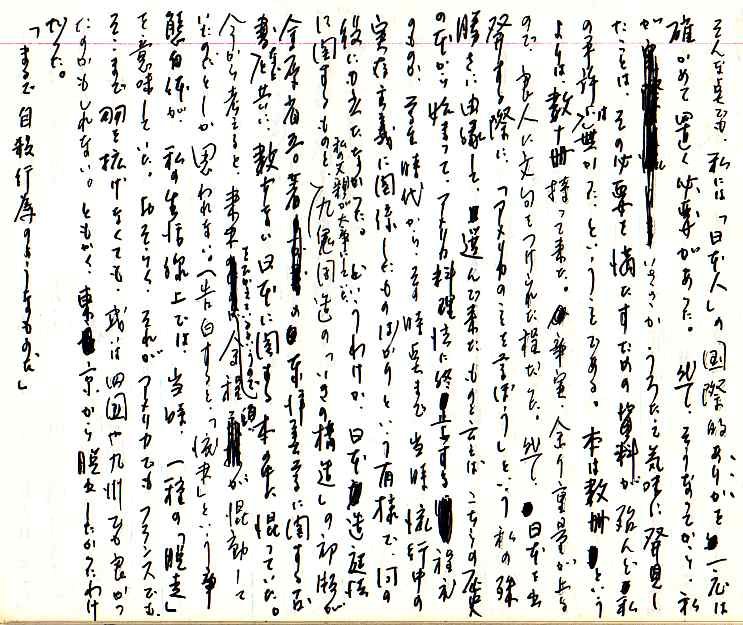 そんな点でも、私には「日本人」の国際的ありかを一応は
確かめて置く必要があった。さて、そうなってから、私
がいささかうろたえ気味に発見し
たことは、その必要を満たすための資料が殆んど私
の手許には無かった、ということである。本は数冊という
よりは数十冊持って来た。事実、余り重量が上る
ので、友人に文句をつけられた程だった。さて、日本を出
発する際に、「アメリカのことを学ぼう」という私の殊
勝さに由縁して、選んで来たものと云えばこちらの歴史
の本から始まって、アメリカ料理法に終止する程度
のもの、学生時代から、その時点まで当時流行中の
実存主義に関係したものばかりという有様で、何の
役にも立たなかった。どういうわけか、日本造庭法
に関するものと、私の父親が大事にしていた九鬼周造の「いきの構造」の初版が
今原省五の著の日本性善学に関する
書などと共に、数少ない日本に関する本の中に混っていた。
今から考えると、余程頭が混動して
いたのだとしか思われない。告白すると、「渡米」という事
態自体が、私の生活線上では、当時、一種の「脱走」
を意味していた。おそらく、それがアメリカでもフランスでも、
そこまで羽を拡げなくても、或いは四国や九州でも良かっ
たのかもしれない。ともかく、東京から脱出したかったわけ
だった。
「まるで自殺行為のようなものだ」